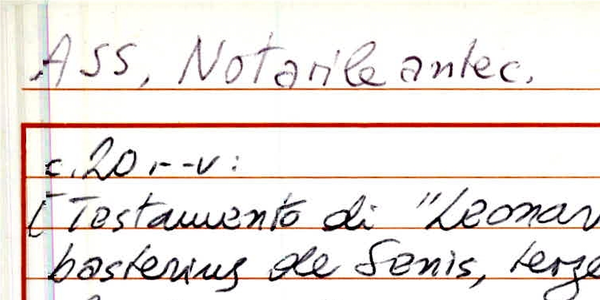 ASS, Notarile antec.
c. 20 r-v:
[Testamento di "Leonar
basterius de Senis, terze